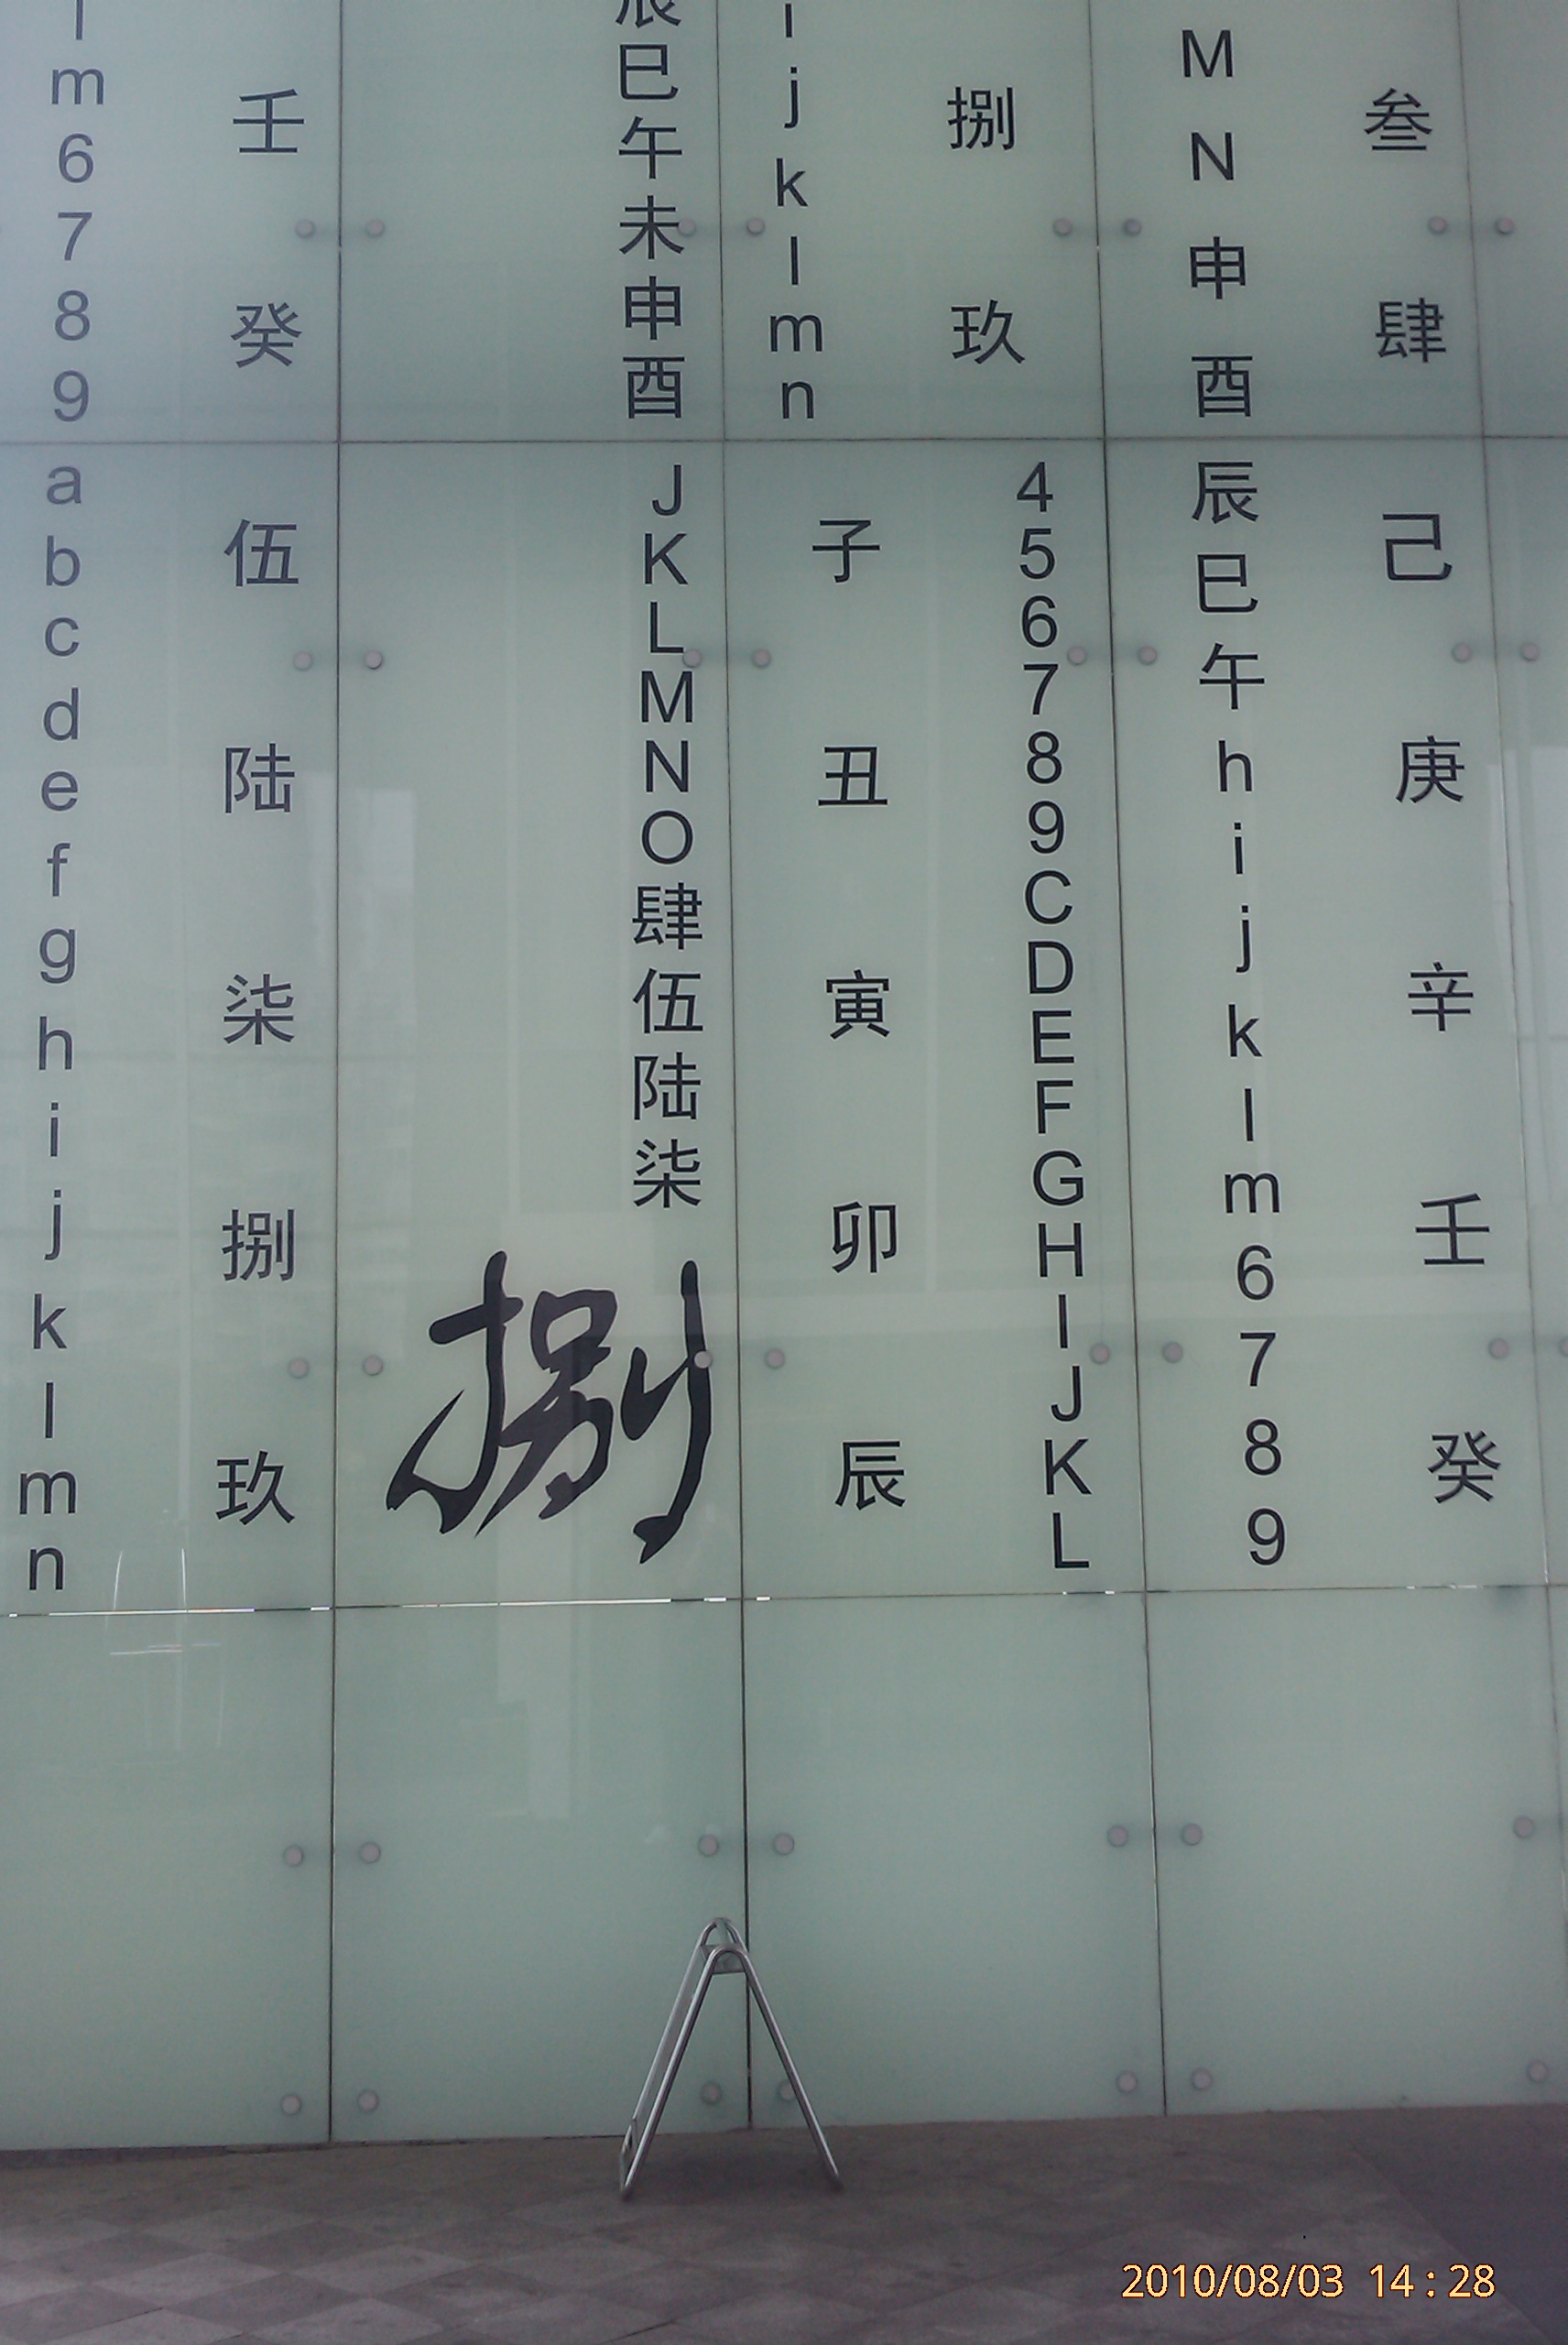 l m 6 7 8 9 a b c d e f g h i j k l m n
壬 癸 伍 陆 柒 捌 玖
辰 巳 午 未 申 酉 J K L M N O 肆 伍 陆 柒 捌
i j k l m n
子 丑 寅 卯 辰
捌 玖
4 5 6 7 8 9 C D E F G H I J K L
M N 申 酉 辰 巳 午 h i j k l m 6 7 8 9
叁 肆 己 庚 辛 壬 癸
2010/08/03 14:28